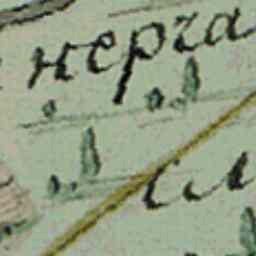 нерга
сл